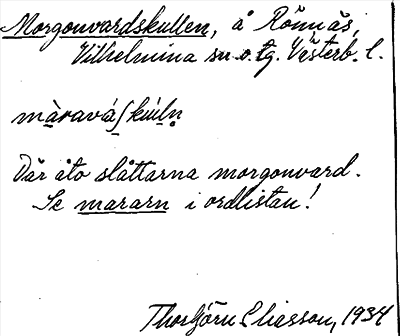 Morgonvardskullen, å Rönnäs,
Vilhelmina sn o. tg. Västerb. l.
màravá∫kúln
Där åto slåttarna morgonvard.
Se mararn i ordlistan!
Thorbjörn Eliasson, 1934